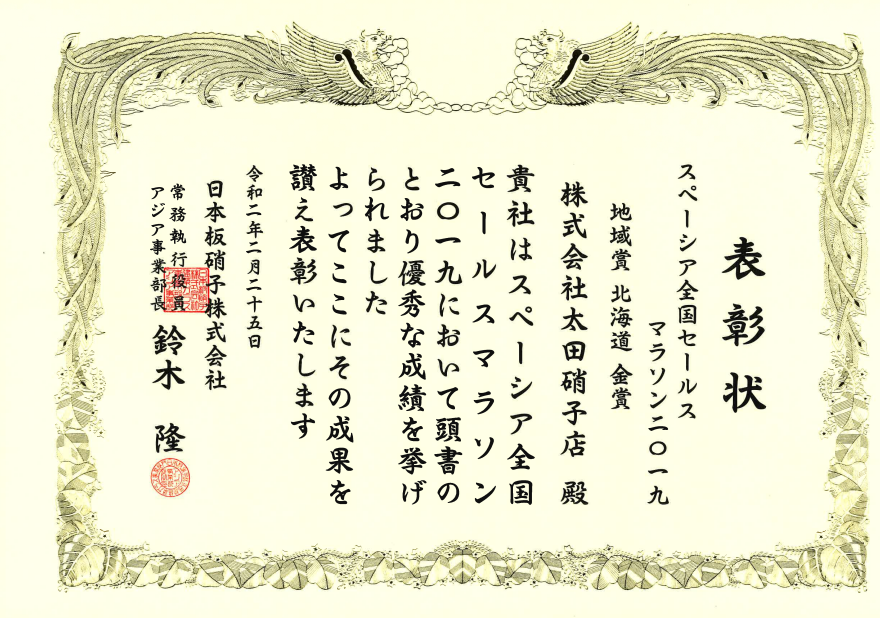 表彰状
スペーシア全国セールス
マラソン二〇一九
地域賞 北海道 金賞
株式会社太田硝子店 殿
貴社はスペーシア全国
セールスマラソン
二〇一九において頭書の
とおり優秀な成績を挙げ
られました
よってここにその成果を
讃え表彰いたします
令和二年二月二十五日
日本板硝子株式会社
常務執行役員
アジア事業部長 鈴木 隆